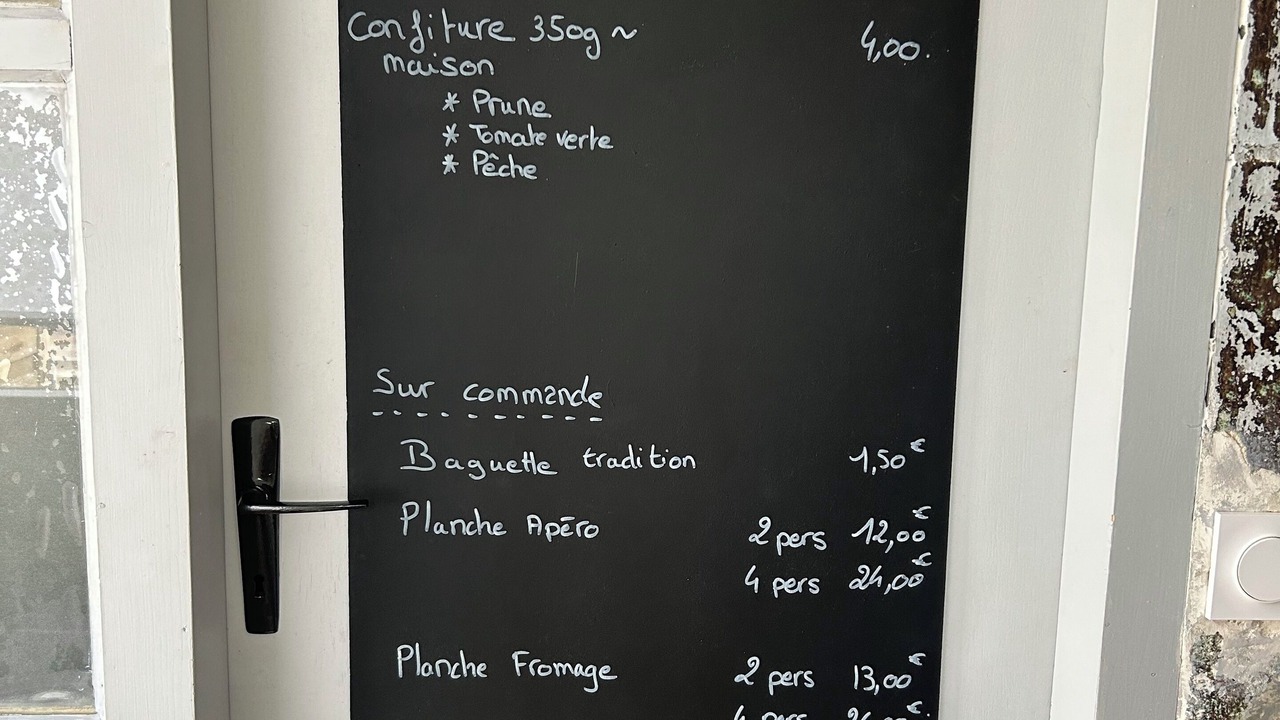 Confiture 350g ~ 4,00.
maison
* Prune
* Tomate verte
* Pêche
Sur commande
Baguette tradition 1,50€
Planche Apéro 2 pers 12,00€
4 pers 24,00€
Planche Fromage 2 pers 13,00€
4 pers